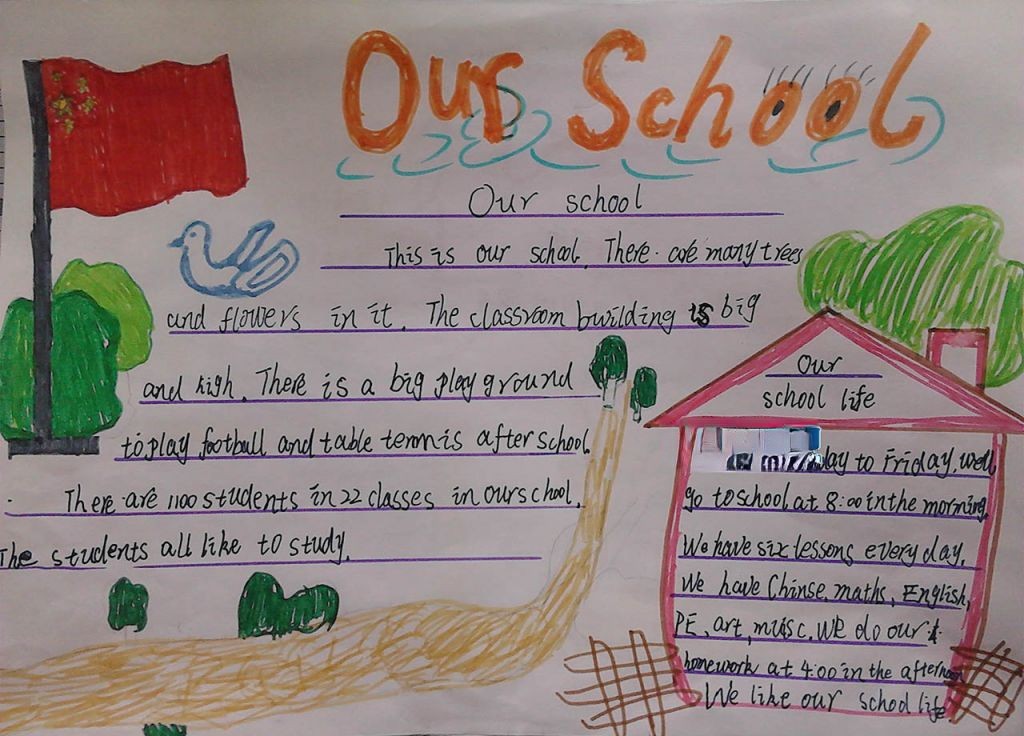 Our School
Our school
This is our school. There are many trees
and flowers in it. The classroom building is big
and high. There is a big play ground
to play football and table tennis after school.
There are 1100 students in 22 classes in our school.
The students all like to study.
Our
school life
day to Friday, we
go to school at 8:00 in the morning.
We have six lessons every day.
We have Chinse, maths, English,
PE, art, muisc. We do our
homework at 4:00 in the afternoon
We like our school life